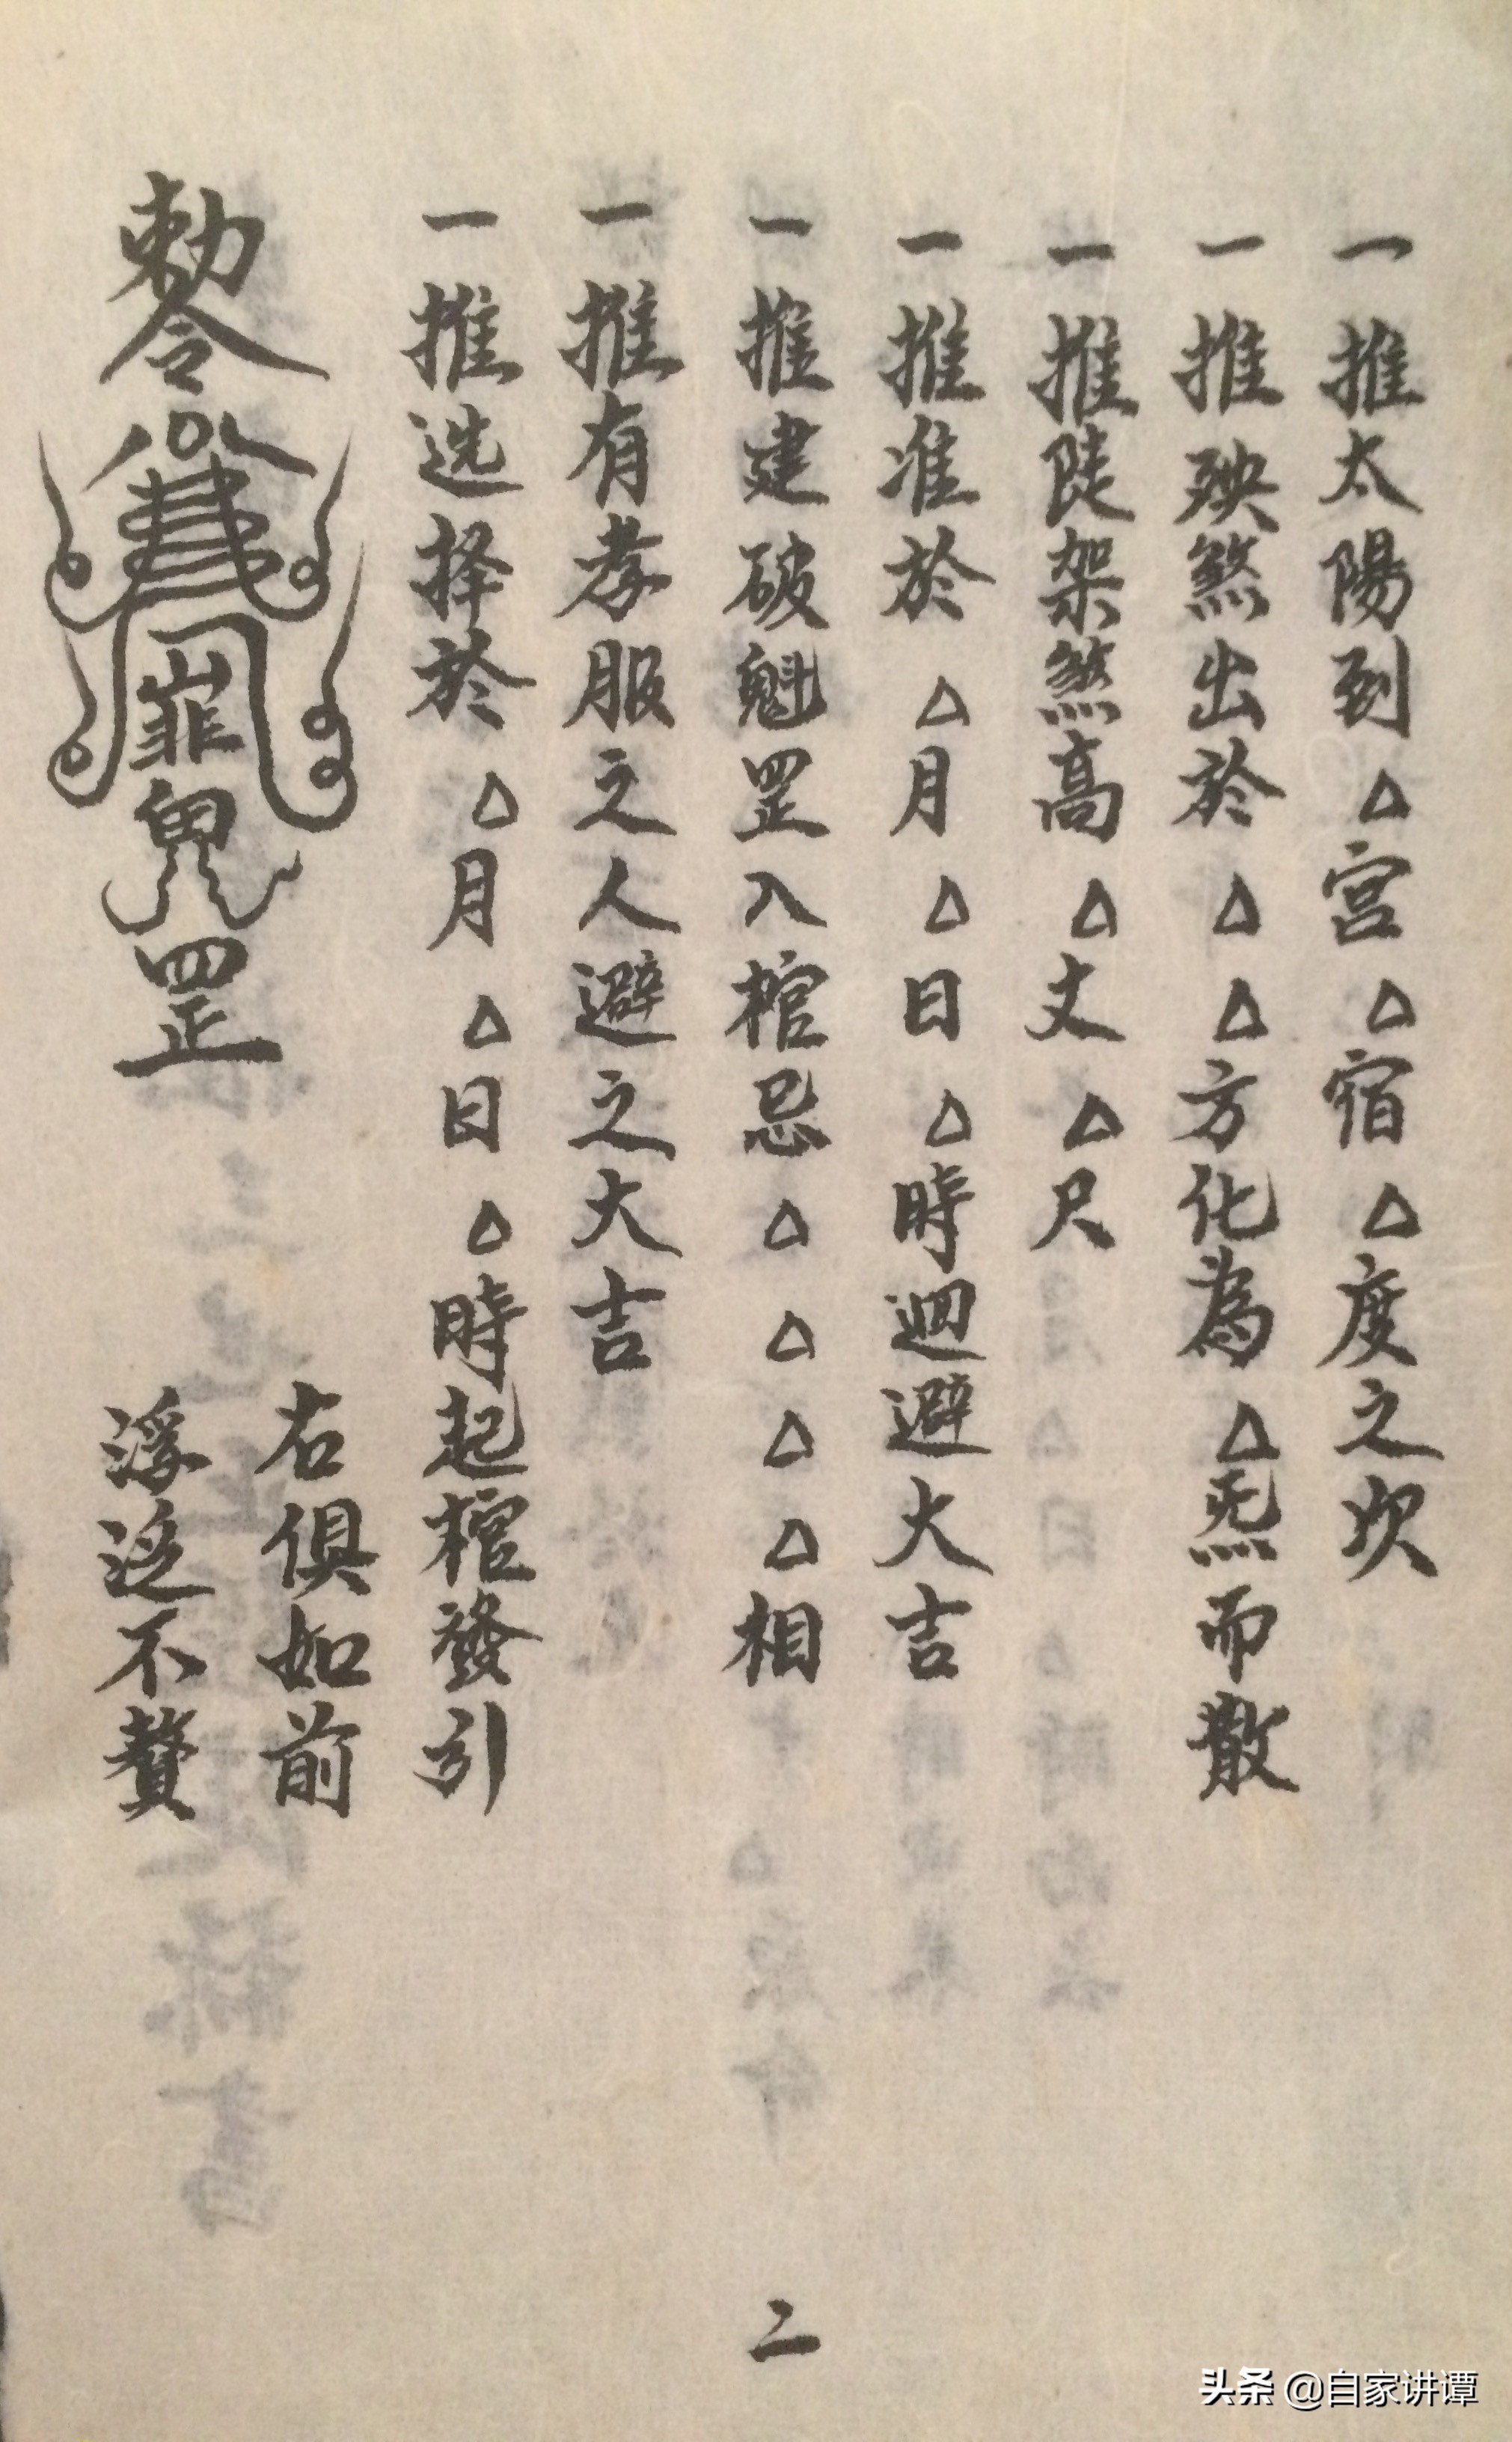 一推太陽到△宫△宿△度之次
一推殃煞出於△△方化為△炁而散
一推陡架煞高△丈△尺
一推准於△月△日△時迴避大吉
一推建破魁罡入棺忌△△△△相
一推有孝服之人避之大吉
一推选择於△月△日△時起棺發引
右俱如前
浮泛不贅
勅令
罡
二
头条 @自家讲谭